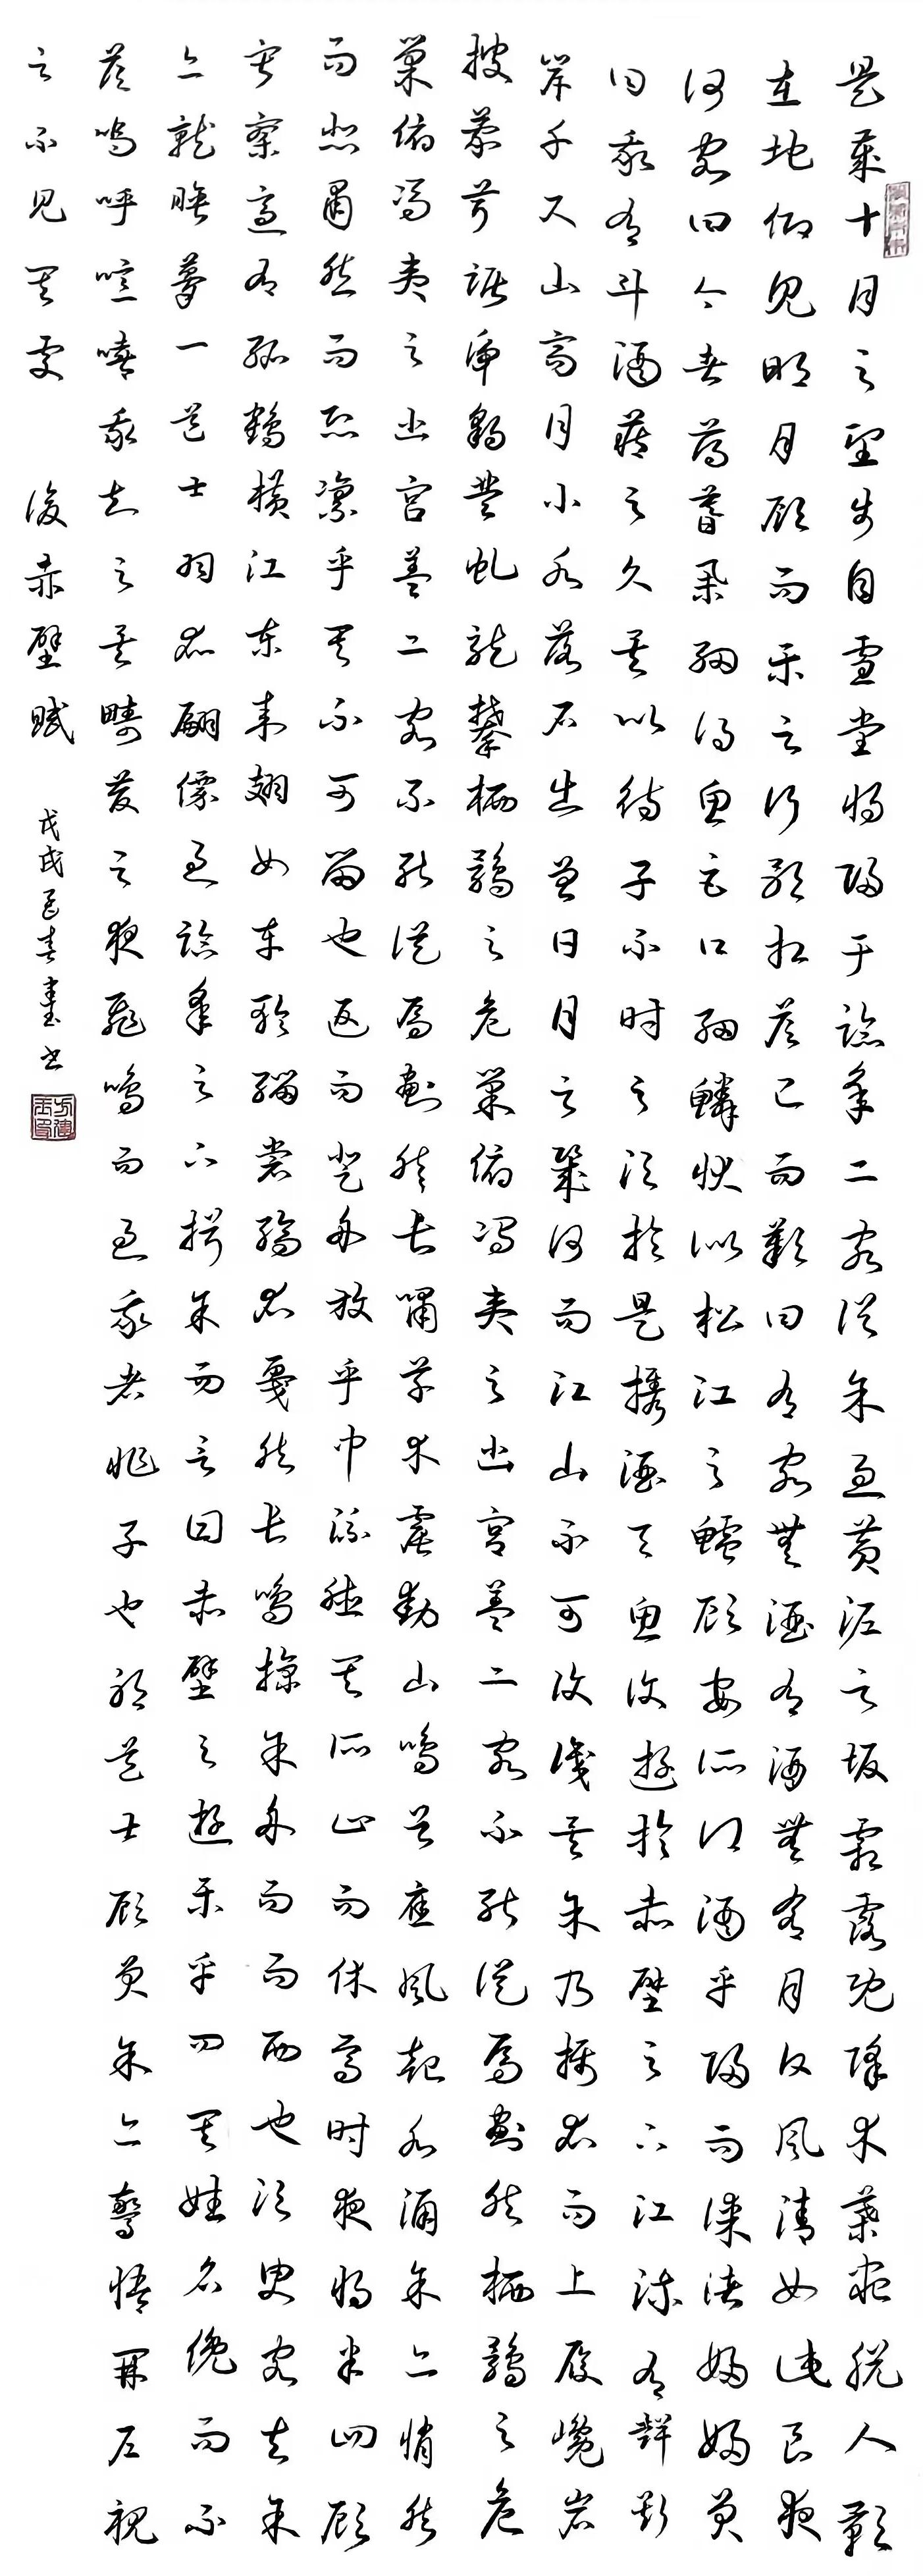 是歲十月之望步自雪堂將歸于臨皋二客從余過黃泥之坂霜露既降木葉盡脫人影
在地仰見明月顧而樂之行歌相答已而歎曰有客無酒有酒無肴月白風清如此良夜
何客曰今者薄暮舉網得魚巨口細鱗狀似松江之鱸顧安所得酒乎歸而謀諸婦婦笑
曰我有斗酒藏之久矣以待子不時之須於是攜酒與魚復遊於赤壁之下江流有聲斷
岸千尺山高月小水落石出曾日月之幾何而江山不可復識矣余乃攝衣而上履巉岩
披蒙茸踞虎豹登虬龍攀栖鶻之危巢俯馮夷之幽宮蓋二客不能從焉劃然栖鶻之危
巢俯馮夷之幽宮蓋二客不能從焉劃然長嘯草木震動山鳴谷應風起水涌余亦悄然
而悲肅然而恐凜乎其不可留也返而登舟放乎中流聽其所止而休焉時夜將半四顧
寂寥適有孤鶴橫江東來翅如車輪緇裳縞衣戛然長鳴掠余舟而而西也須臾客去余
亦就睡夢一道士羽衣翩僊過臨皋之下揖余而言曰赤壁之遊樂乎問其姓名俛而不
答嗚呼噫嘻我知之矣疇昔之夜飛鳴而過我者非子也耶道士顧笑余亦驚悟開戶視
之不見其處 後赤壁賦 戊戌孟春書